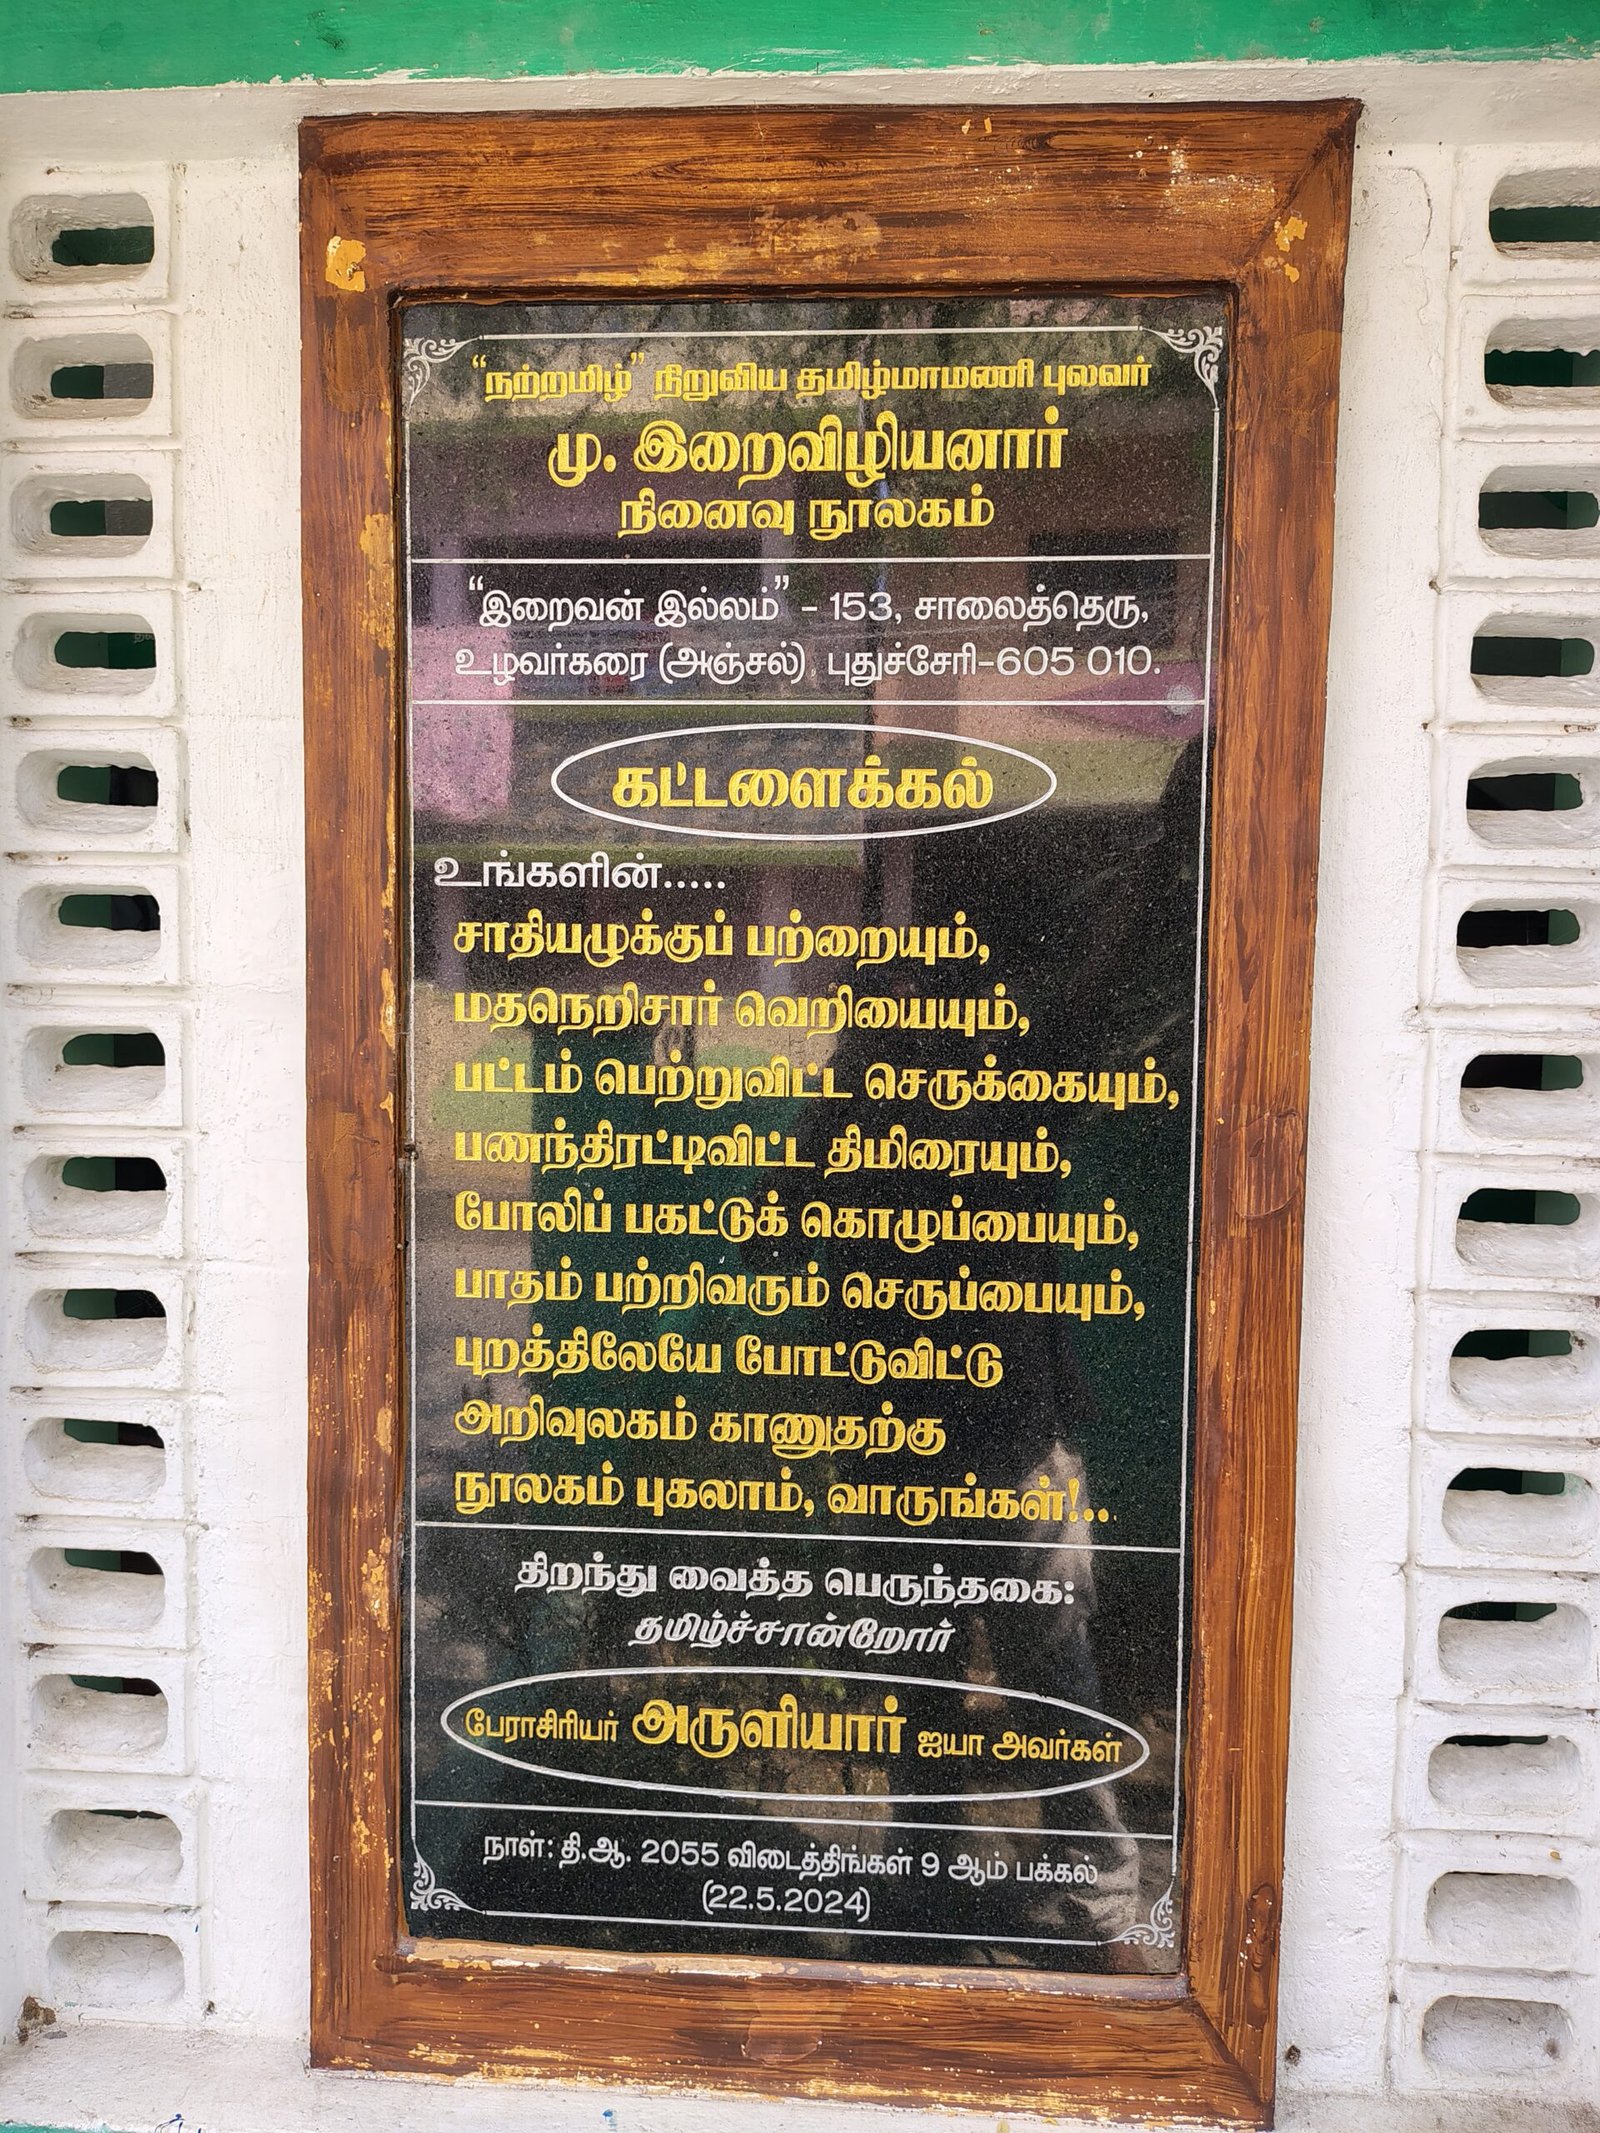 “நற்றமிழ்” நிறுவிய தமிழ்மாமணி புலவர்
மு. இறைவிழியனார்
நினைவு நூலகம்
“இறைவன் இல்லம்” - 153, சாலைத்தெரு,
உழவர்கரை (அஞ்சல்), புதுச்சேரி-605 010.
கட்டளைக்கல்
உங்களின்.....
சாதியழுக்குப் பற்றையும்,
மதநெறிசார் வெறியையும்,
பட்டம் பெற்றுவிட்ட செருக்கையும்,
பணந்திரட்டிவிட்ட திமிரையும்,
போலிப் பகட்டுக் கொழுப்பையும்,
பாதம் பற்றிவரும் செருப்பையும்,
புறத்திலேயே போட்டுவிட்டு
அறிவுலகம் காணுதற்கு
நூலகம் புகலாம், வாருங்கள்!..
திறந்து வைத்த பெருந்தகை:
தமிழ்ச்சான்றோர்
பேராசிரியர் அருளியார் ஐயா அவர்கள்
நாள்: தி.ஆ. 2055 விடைத்திங்கள் 9 ஆம் பக்கல்
(22.5.2024)